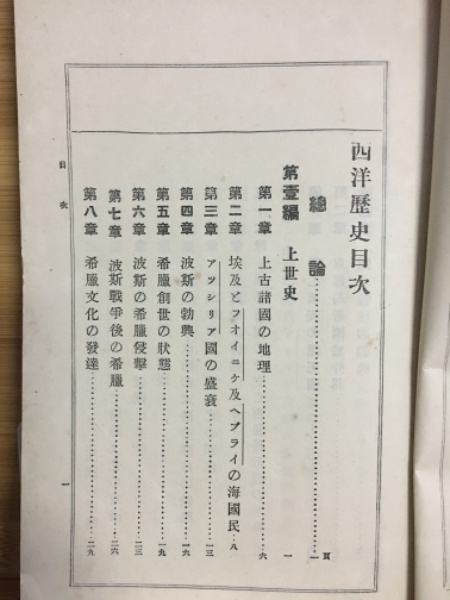 西洋歷史目次
總論………一頁
第壹編 上世史 一
第一章 上古諸國の地理………六
第二章 埃及とフオイニケ及ヘブライの海國民‥八
第三章 アツシリア國の盛衰………一三
第四章 波斯の勃興………一六
第五章 希臘創世の狀態………一九
第六章 波斯の希臘侵擊………二三
第七章 波斯戰爭後の希臘………二六
第八章 希臘文化の發達………二九
目次
一